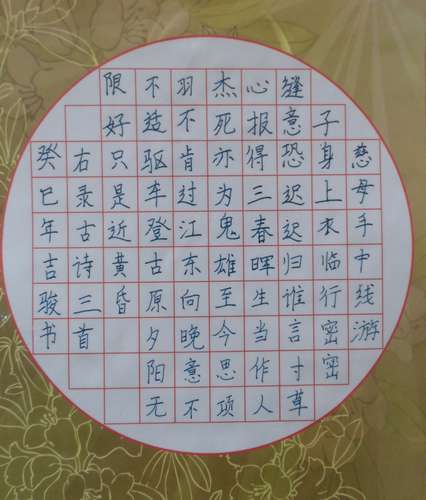 慈母手中线游
子身上衣临行密密
缝意恐迟迟归谁言寸草
心报得三春晖生当作人
杰死亦为鬼雄至今思项
羽不肯过江东向晚意不
不适驱车登古原夕阳无
限好只是近黄昏
右录古诗三首
癸巳年吉骏书